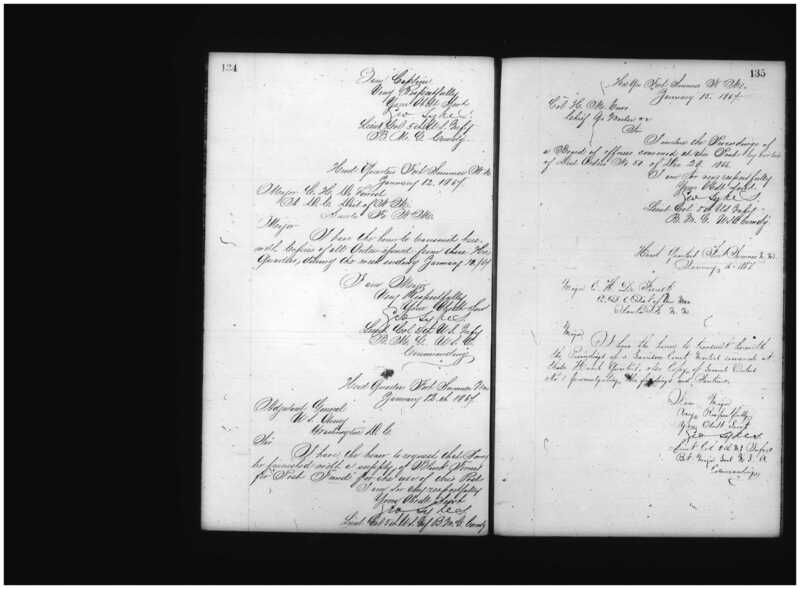 134
I am Captain
Very Respectfully
Your Obdt Servt
Geo Sykes
Lieut Col 5th U.S. Infty
B. M. G. Comdg
Head Quarters Fort Sumner N. M.
January 12, 1867.
Major C. H. De Forrest
A. A. G. Dist of N. M.
Santa Fe N. M.
Major
I have the honor to transmit here-
with Copies of all Orders issued from these Head
Quarters, during the week ending January 12, /67
I am Major
Very Respectfully
Your Obdt Servt
Geo Sykes
Lieut Col 5th U.S. Infty
B. M. G. U.S.A.
Commanding
Head Quarters Fort Sumner N.M.
January 12th 1867.
Adjutant General
U.S. Army
Washington D.C.
Sir
I have the honor to request that I may
be furnished with a supply of Blank Forms
for Post Funds for the use of this Post
I am Sir very respectfully
Your Obdt Servt
Geo Sykes
Lieut Col 5th U.S. Inf B. M. G. Comdg
135
Hd Qrs Fort Sumner N. M.
January 15, 1867.
Col H. M.
Chief Qr Master
Sir
I enclose the Proceedings of
a Board of officers convened at this Post by
of Order No 50 of Dec 29, 1866.
I am Sir very respectfully
Your Obdt Servt
Geo Sykes
Lieut Col 5th U.S. Infty
B. M. G. U.S.A. Comdg
Head Quarters Fort Sumner N. M.
January 1867
Major C. H. De Forrest
A.A.G. Dist of New Mex
Santa Fe N. M.
Major
I have the honor to transmit herewith
the Proceedings of a Garrison Court Martial convened at
these Head Quarters, also Copy of General Orders
No 1 promulgating the findings and Sentence.
I am Major
Very Respectfully
Your Obdt Servt
Geo Sykes
Lieut Col 5th U.S. Infty
Bt Major Genl U.S.A.
Commanding